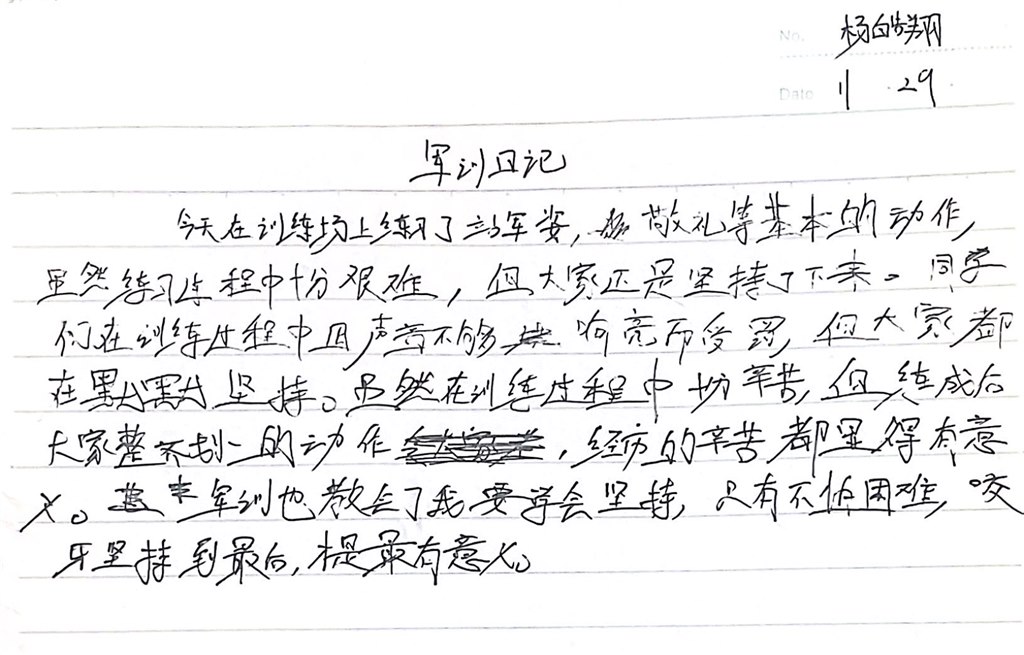 No. 杨皓翔
Date 11 . 29 .
军训日记
今天在训练场上练习了站军姿，敬礼等基本的动作，
虽然练习过程中十分艰难，但大家还是坚持了下来。同学
们在训练过程中因声音不够响亮而受罚，但大家都
在默默坚持。虽然在训练过程中十分辛苦，但练成后
大家整齐划一的动作，经历的辛苦都显得有意
义。军训也教会了我要学会坚持，只有不怕困难，咬
牙坚持到最后，才是最有意义。